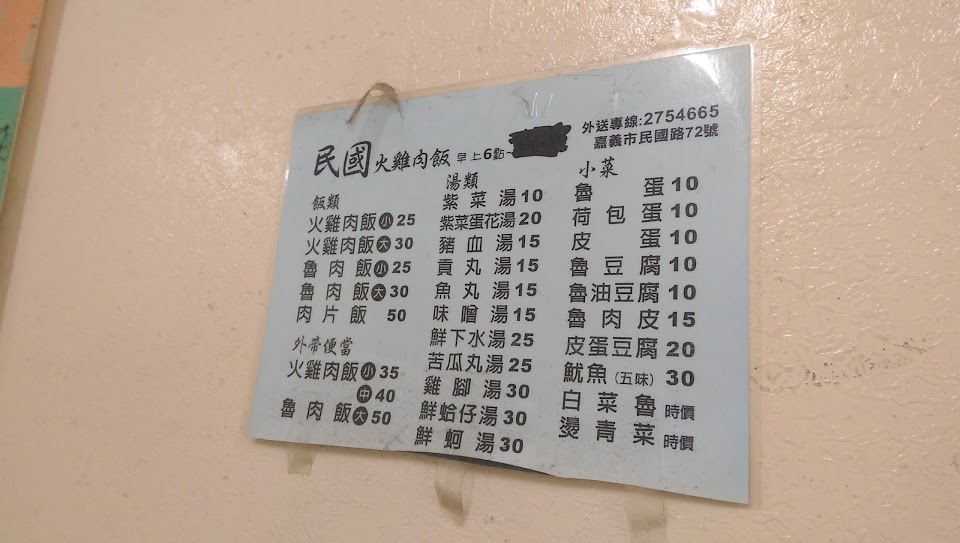 民國火雞肉飯 早上6點~
外送專線:2754665
嘉義市民國路72號
飯類
火雞肉飯 小 25
火雞肉飯 大 30
魯肉飯 小 25
魯肉飯 大 30
肉片飯 50
外帶便當
火雞肉飯 小 35
中 40
魯肉飯 大 50
湯類
紫菜湯 10
紫菜蛋花湯 20
豬血湯 15
貢丸湯 15
魚丸湯 15
味噌湯 15
鮮下水湯 25
苦瓜丸湯 25
雞腳湯 30
鮮蛤仔湯 30
鮮蚵湯 30
小菜
魯蛋 10
荷包蛋 10
皮蛋 10
魯豆腐 10
魯油豆腐 10
魯肉皮 15
皮蛋豆腐 20
魷魚(五味) 30
白菜魯 時價
燙青菜 時價